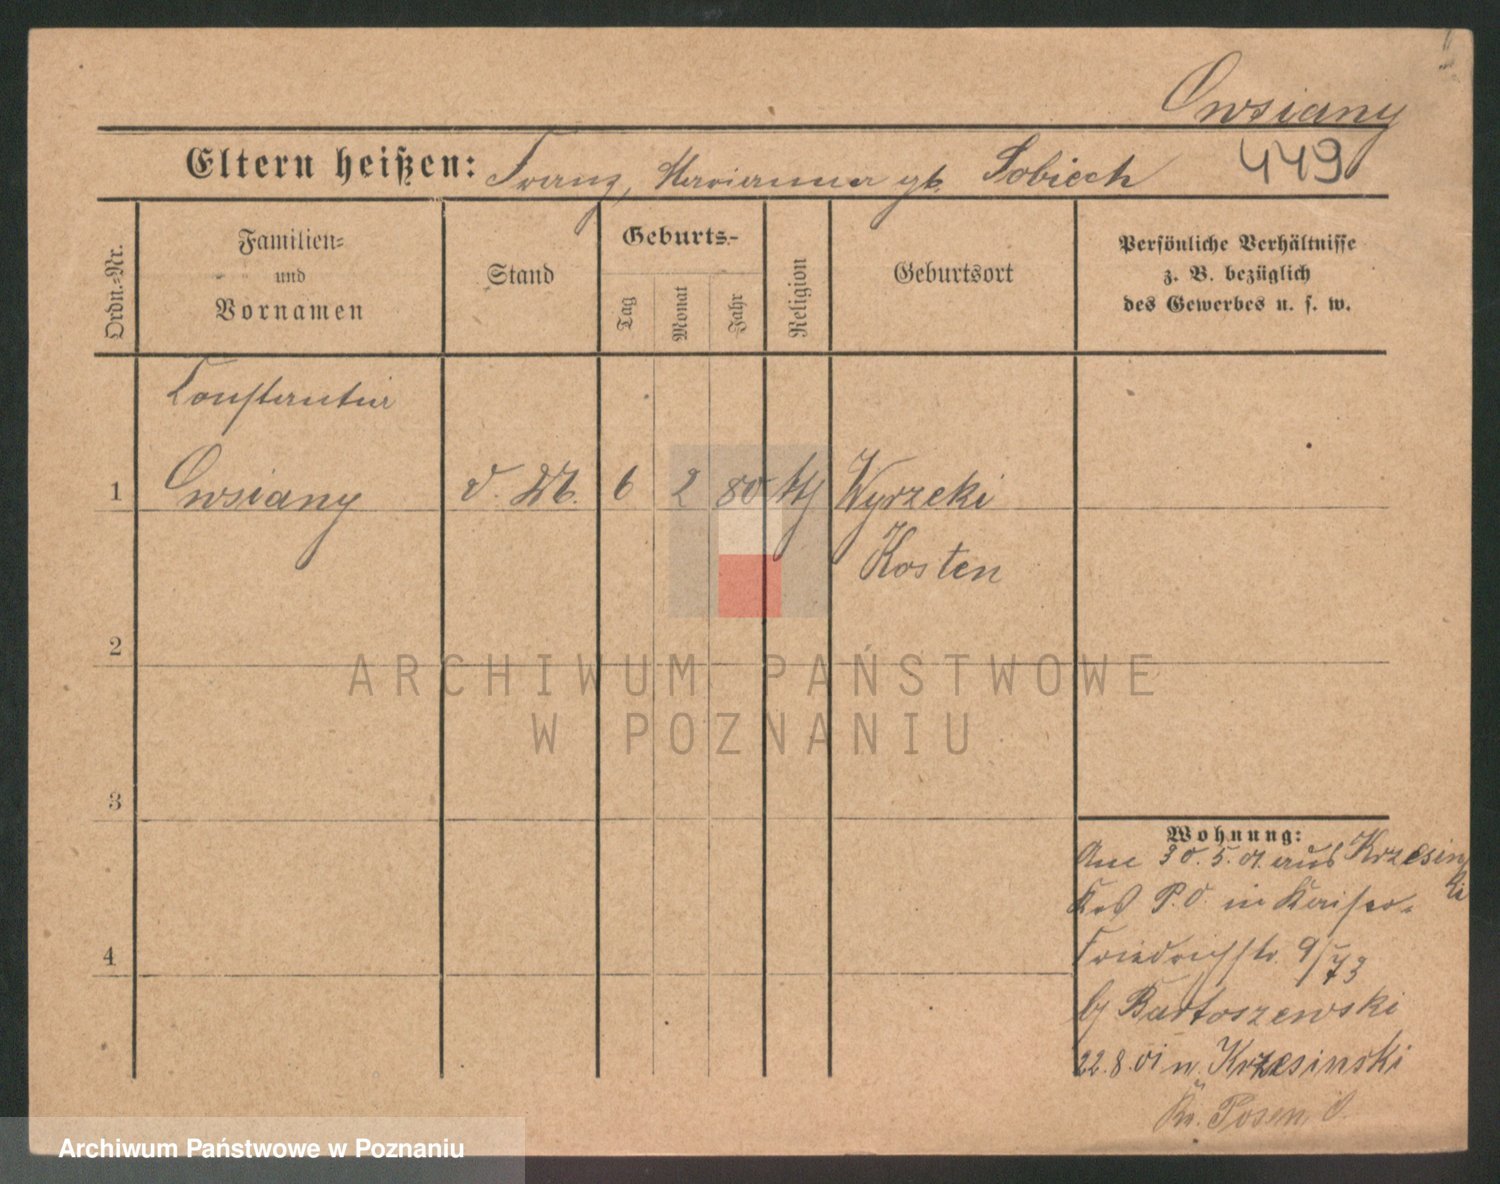 Owsiany
449
Eltern heißen: Franz, Marianna gb. Sobiech
Ordn.-Nr.
Familien-
und
Vornamen
Stand
Geburts-
Tag
Monat
Jahr
Religion
Geburtsort
Persönliche Verhältnisse
z. B. bezüglich
des Gewerbes u. s. w.
Konstantin
1 Owsiany 6 2 80 Wyrzeki
Kosten
2
ARCHIWUM PAŃSTWOWE
W POZNANIU
3
4
Wohnung:
30.5.01 aus Krzesin
ki
P.O. in Kaiser-
Friedrichstr. 9/73
b/ Bartoszewski
22.8.01 n. Krzesinski
Kr. Posen O.
Archiwum Państwowe w Poznaniu